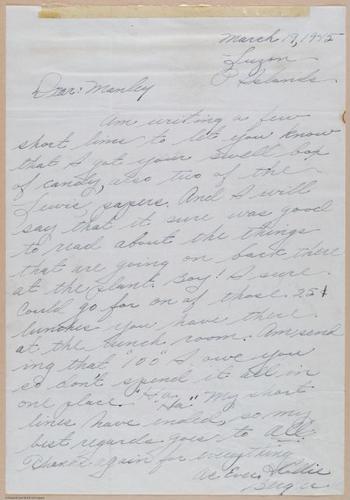 March 19, 1945
Luzon
P Islands
Dear: Manley
Am writing a few
short lines to let you know
that I got your swell box
of candy, also two of the
papers. And I will
say that it sure was good
to read about the things
that are going on back there
at the plant. Boy! I sure
could go for on of those 25¢
lunches you have there
at the lunch room. Am send
ing that "100" I owe you
so don't spend it all in
one place. "Ha Ha" My short
lines have ended, so my
best regards goes to All.
Thanks again for everything
As Ever